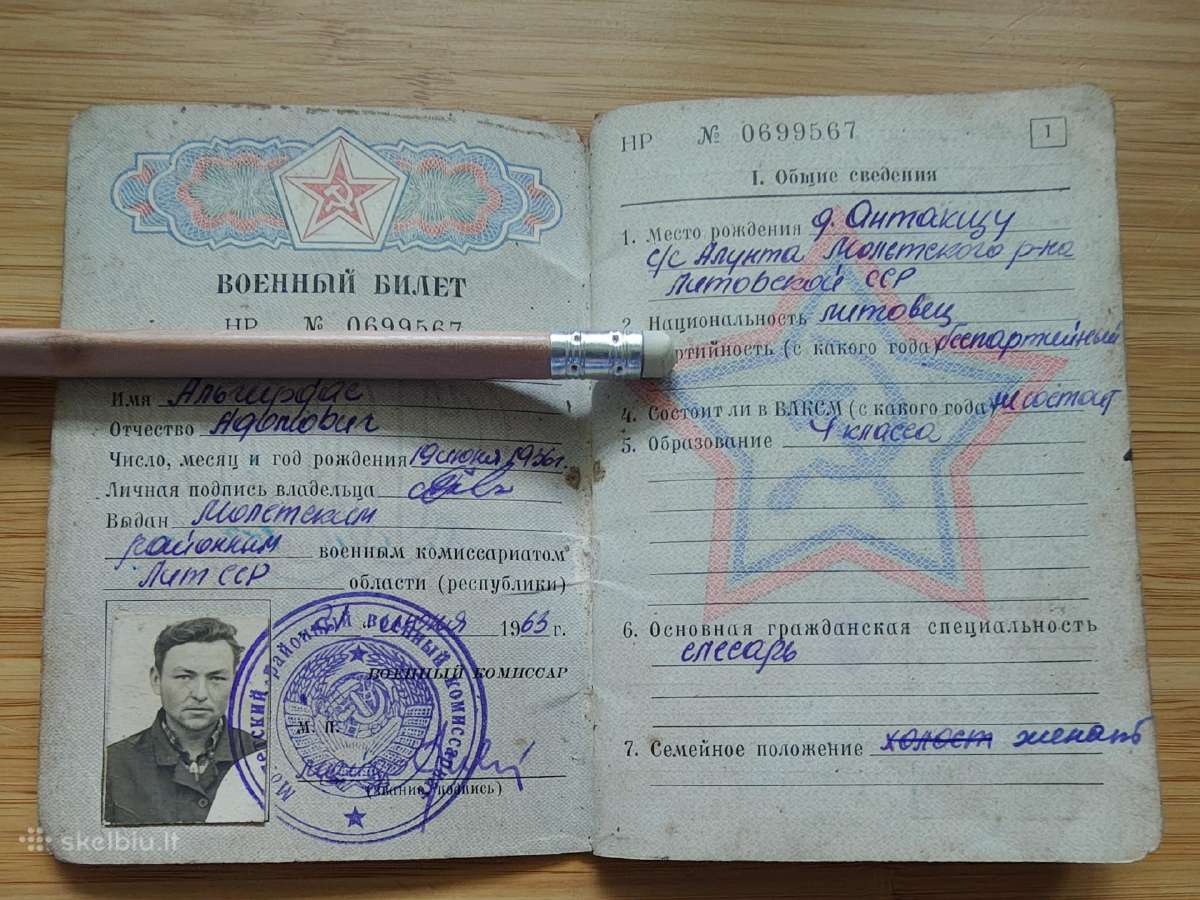 ВОЕННЫЙ БИЛЕТ
НР № 0699567
Имя Альгирдас
Отчество Адольфович
Число, месяц и год рождения 19 июня 1936г.
Личная подпись владельца
Выдан Молетским
районным военным комиссариатом
Лит ССР области (республики)
июня 1963 г.
ВОЕННЫЙ КОМИССАР
М. П.
(звание, подпись)
районный военный комиссариат
НР № 0699567
1
I. Общие сведения
1. Место рождения д. Антакщу
с/с Алунта Молетского р-на
Литовской ССР
2. Национальность литовец
партийность (с какого года) беспартийный
4. Состоит ли в ВЛКСМ (с какого года) не состоит
5. Образование 4 класса
6. Основная гражданская специальность
слесарь
7. Семейное положение холост женат
skelbiu.lt